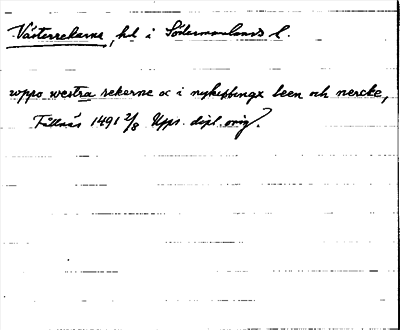 Västerrekarne, hd i Södermanlands l.
wppo westra rekerne oc i nyköpinga leen och nercke,
Fållnäs 1491 2/8 Upps. dipl. orig.